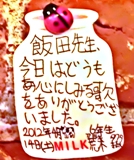 飯田先生、
今日はどうも
あ心にしみる歌
をありがとうござ
いました。
2012年4月
14日(土)MILK 6年生